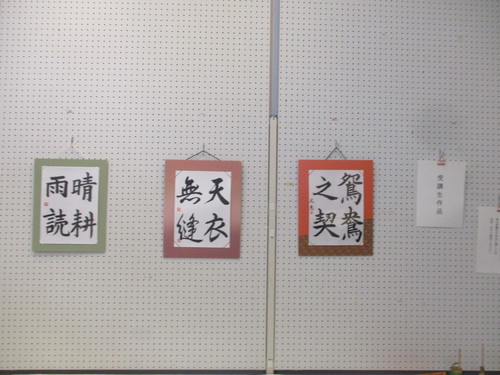 晴耕
雨読
天衣
無縫
鴛鴦
之契
受講生作品